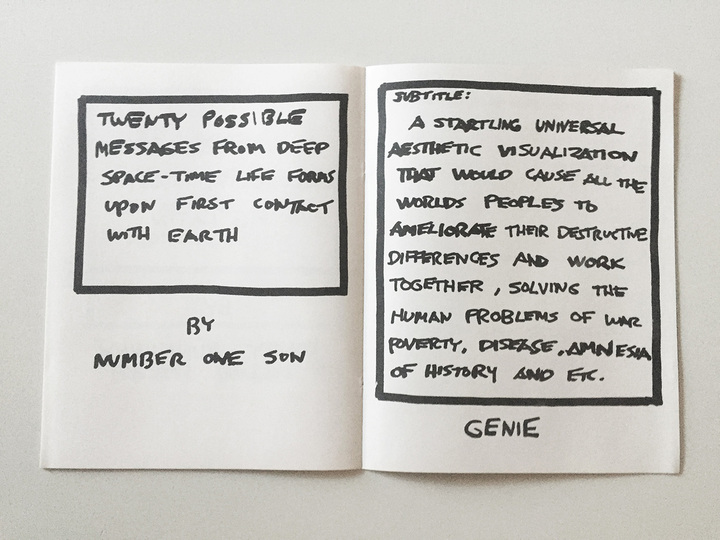 TWENTY POSSIBLE
MESSAGES FROM DEEP
SPACE-TIME LIFE FORMS
UPON FIRST CONTACT
WITH EARTH
BY
NUMBER ONE SON
SUBTITLE:
A STARTLING UNIVERSAL
AESTHETIC VISUALIZATION
THAT WOULD CAUSE ALL THE
WORLDS PEOPLES TO
AMELIORATE THEIR DESTRUCTIVE
DIFFERENCES AND WORK
TOGETHER, SOLVING THE
HUMAN PROBLEMS OF WAR
POVERTY, DISEASE, AMNESIA
OF HISTORY AND ETC.
GENIE